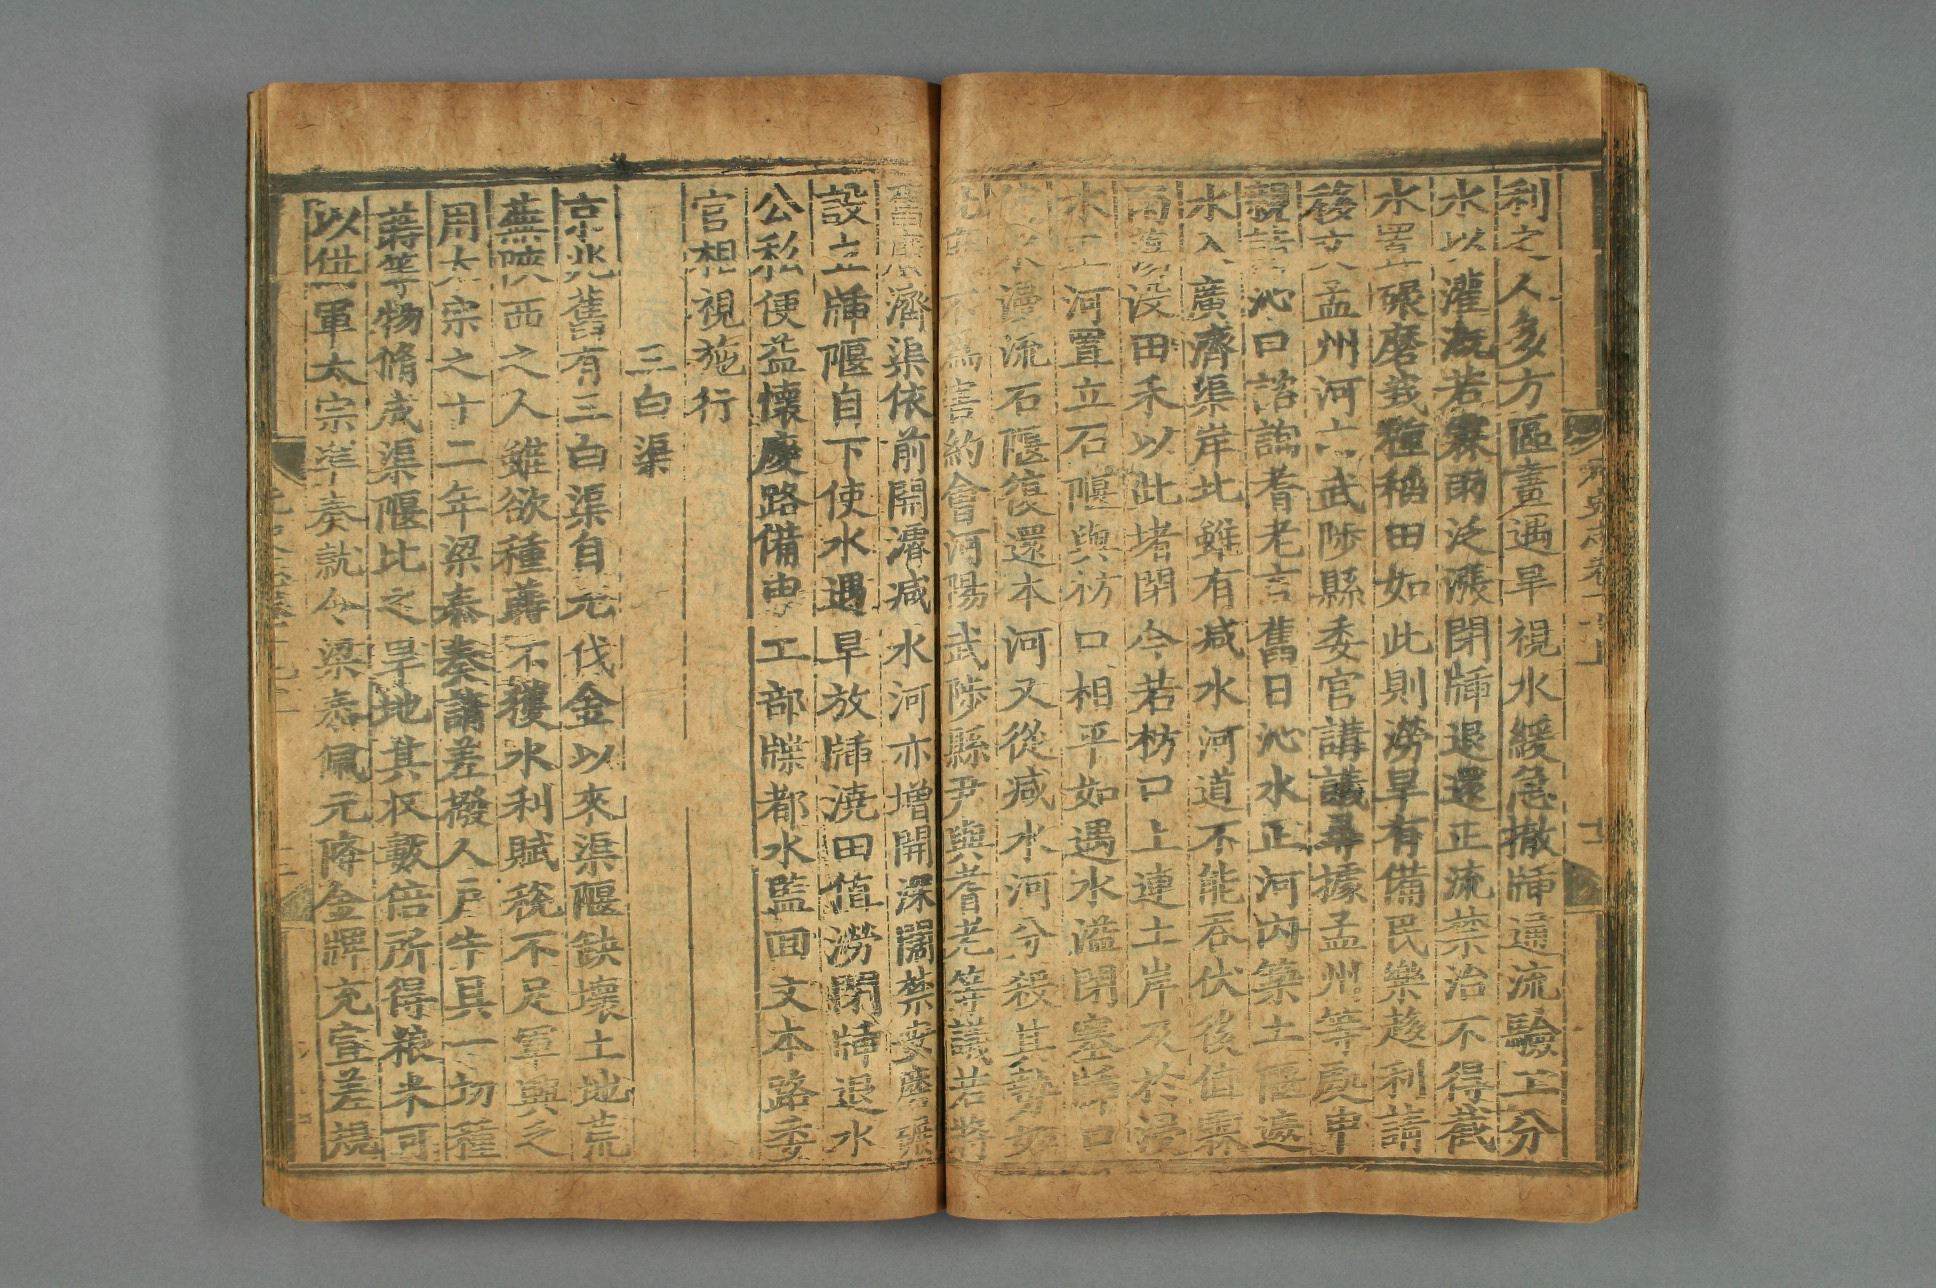 利之人多方區畫遇旱視水緩急撤牐通流驗工分
水以灌溉若霖雨泛漲閉牐退還正流禁治不得截
水置碾磨栽種稻田如此則澇旱有備民樂趨利請
移文孟州河內武陟縣委官講議尋據孟州等處申
親詣沁口諮詢耆老言舊日沁水正河內築土堰遮
水入廣濟渠岸北雖有減水河道不能吞伏後值霖
雨蕩沒田禾以此堵閉今若枋口上連土岸及於浸
水正河置立石堰與枋口相平如遇水溢閉塞牐口
使水漫流石堰復還本河又從減水河分殺其勢如
此庶不為害約會河陽武陟縣尹與耆老等議若將
舊廣濟渠依前開濬減水河亦增開深闊禁安磨碾
設立牐堰自下使水遇旱放牐澆田值澇閉牐退水
公私便益懷慶路備申工部牒都水監回文本路委
官相視施行
三白渠
京兆舊有三白渠自元伐金以來渠堰缺壞土地荒
蕪陝西之人雖欲種蒔不獲水利賦稅不足軍興乏
用太宗之十二年梁泰奏請差撥人戶牛具一切種
蒔等物脩成渠堰比之旱地其收數倍所得粮米可
以供軍太宗準奏就令梁泰佩元降金牌充宣差規